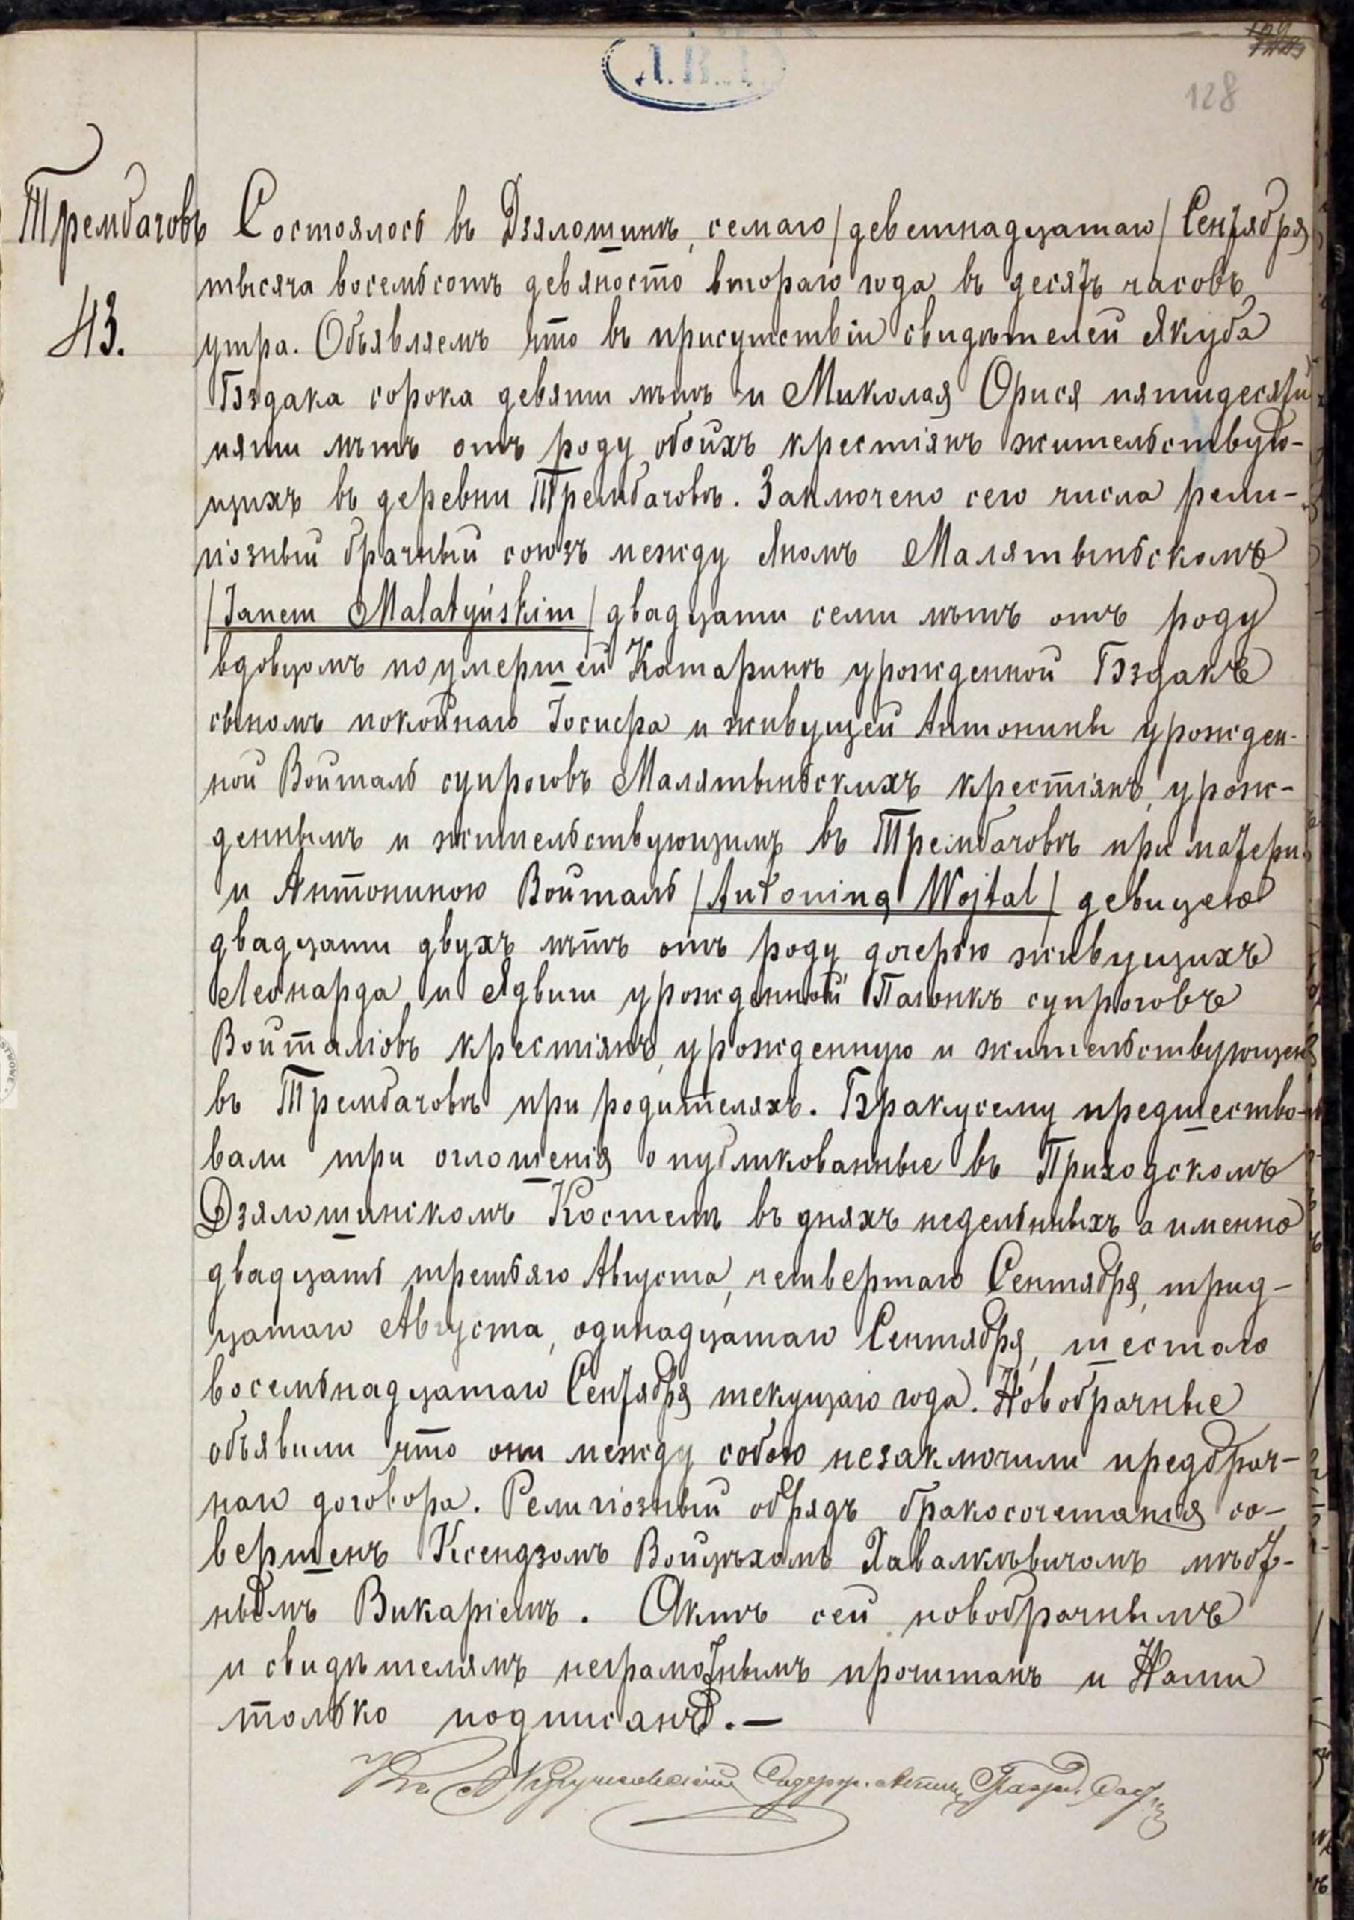 128
Трембачовъ
43.
Состоялось въ Дзялошинѣ, семаго /деветнадцатаго/ Сентября
тысяча восемьсотъ девяносто втораго года въ десять часовъ
утра. Объявляемъ что въ присутствіи свидѣтелей Якуба
Бэздака сорока девяти лѣтъ и Миколая Орися пятидесяти
пяти лѣтъ отъ роду обоихъ крестіянъ жительствую-
щихъ въ деревни Трембачовѣ. Заключено сего числа рели-
гіозный брачный союзъ между Яномъ Малятыньскомъ
/Janem Malatyńskim/ двадцати семи лѣтъ отъ роду
вдовцомъ по умершей Катаринѣ урожденной Бэздакъ
сыномъ покойнаго Іосифа и живущей Антонины урожден-
ной Войталь супруговъ Малятыньскихъ крестіянъ, урож-
деннымъ и жительствующимъ въ Трембачовѣ при матери
и Антониною Войталь /Antoniną Wojtal/ девицею
двадцати двухъ лѣтъ отъ роду дочерью живущихъ
Леонарда и Ядвиги урожденной супруговъ
Войталіовъ крестіянъ, урожденную и жительствующею
въ Трембачовѣ при родителяхъ. Бракусему предшество-
вали три оглошенія опубликованные въ Приходскомъ
Дзялошинскомъ Костелѣ въ дняхъ недельныхъ а именно
двадцать третьяго Августа, четвертаго Сентября, трид-
цатаго Августа, одинадцатаго Сентября, шестаго
восемьнадцатаго Сентября текущаго года. Новобрачные
объявили что они между собою незаключили предбрач-
наго договора. Религіозный обрядъ бракосочетанія со-
вершенъ Ксендзомъ Войцѣхомъ мѣст-
нымъ Викаріемъ. Актъ сей новобрачнымъ
и свидѣтелямъ неграмотнымъ прочитанъ и Нами
только подписанъ.—